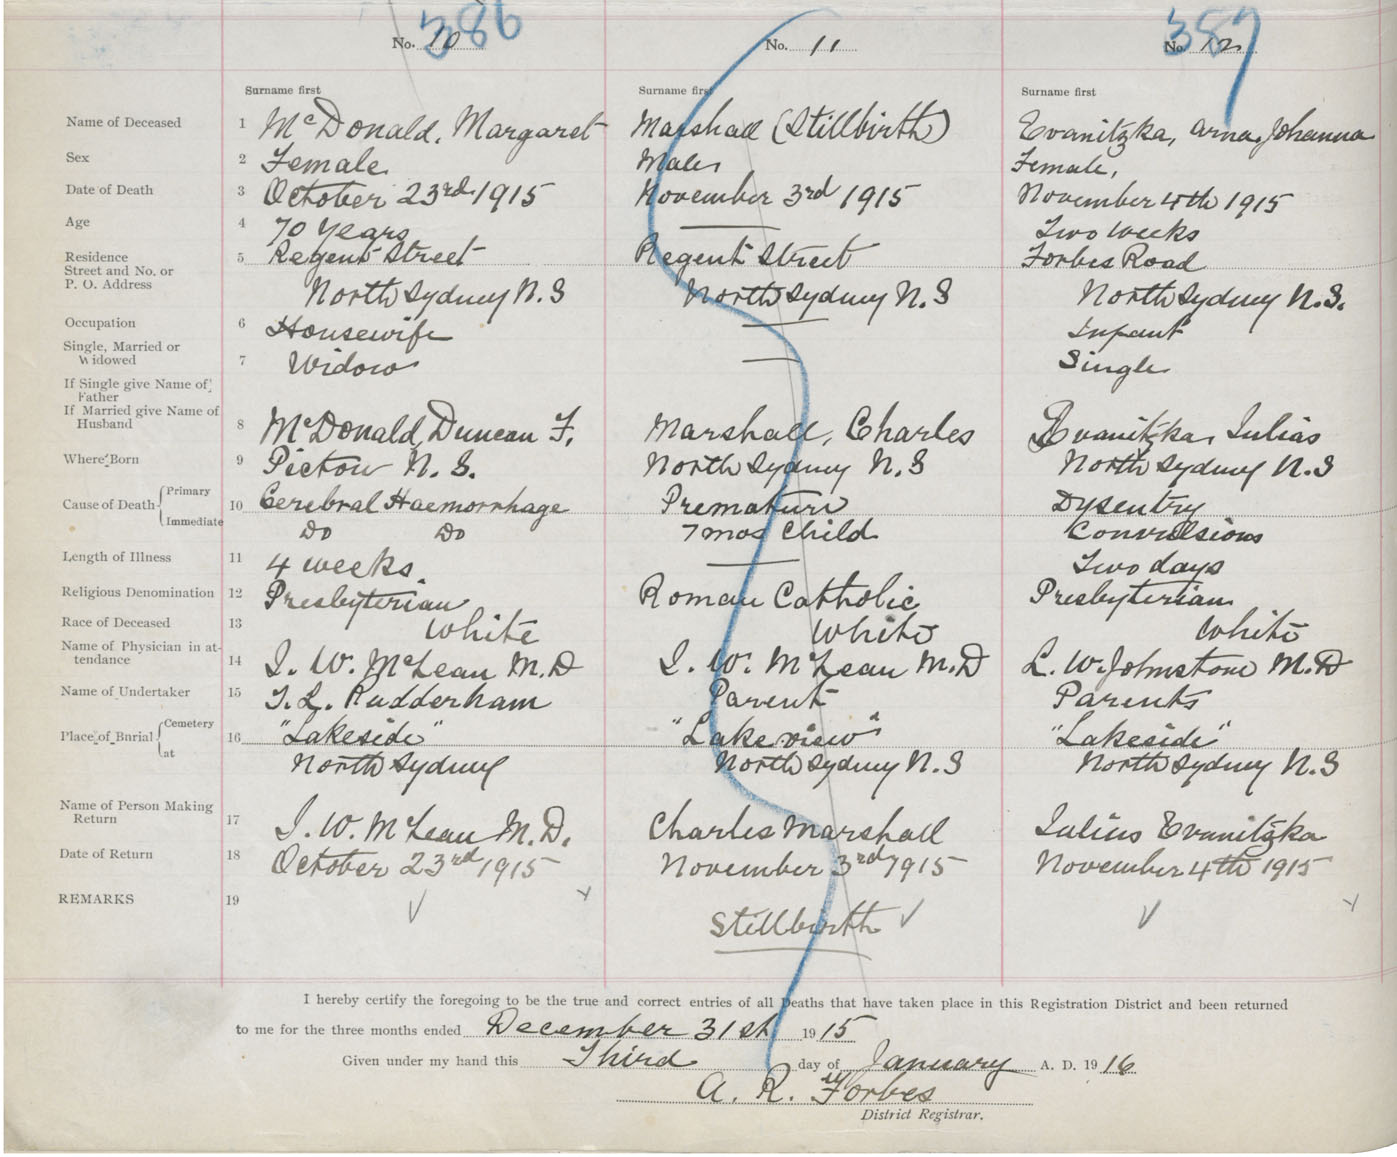 386 387
No. 10 No. 11 No. 12
Surname first Surname first Surname first
Name of Deceased 1 McDonald, Margaret Marshall (Stillbirth) Evanitzka, Arna, Johanna
Sex 2 Female Male, Female,
Date of Death 3 October 23rd 1915 November 3rd 1915 November 4th 1915
Age 4 70 years Two weeks
Residence 5 Regent Street Regent Street Forbes Road
Street and No. or
P. O. Address North Sydney N.S North Sydney N.S North Sydney N.S.
Occupation 6 Housewife Infant
Single, Married or
Widowed 7 Widow Single
If Single give Name of
Father
If Married give Name of
Husband 8 McDonald, Duncan F. Marshall, Charles Evanitzka, Julias
Where Born 9 Pictou N.S. North Sydney N.S North Sydney N.S
Cause of Death Primary 10 Cerebral Haemorrhage Premature Dysentry
Immediate Do Do 7 mos Child Convulsions
Length of Illness 11 4 weeks. Two days
Religious Denomination 12 Presbyterian Roman Catholic Presbyterian
Race of Deceased 13 White White White
Name of Physician in at-
tendance 14 J. W. McLean M.D J. W. McLean M.D L. W. Johnstone M.D
Name of Undertaker 15 T. L. Rudderham Parent Parents
Place of Burial Cemetery 16 "Lakeside" "Lakeview" "Lakeside"
at North Sydney North Sydney N.S North Sydney N.S
Name of Person Making
Return 17 J. W. McLean M.D. Charles Marshall Julius Evanitzka
Date of Return 18 October 23rd 1915 November 3rd 1915 November 4th 1915
REMARKS 19 Stillbirth
I hereby certify the foregoing to be the true and correct entries of all Deaths that have taken place in this Registration District and been returned
to me for the three months ended December 31st 1915
Given under my hand this Third day of January A. D. 1916
A. R. Forbes
District Registrar.